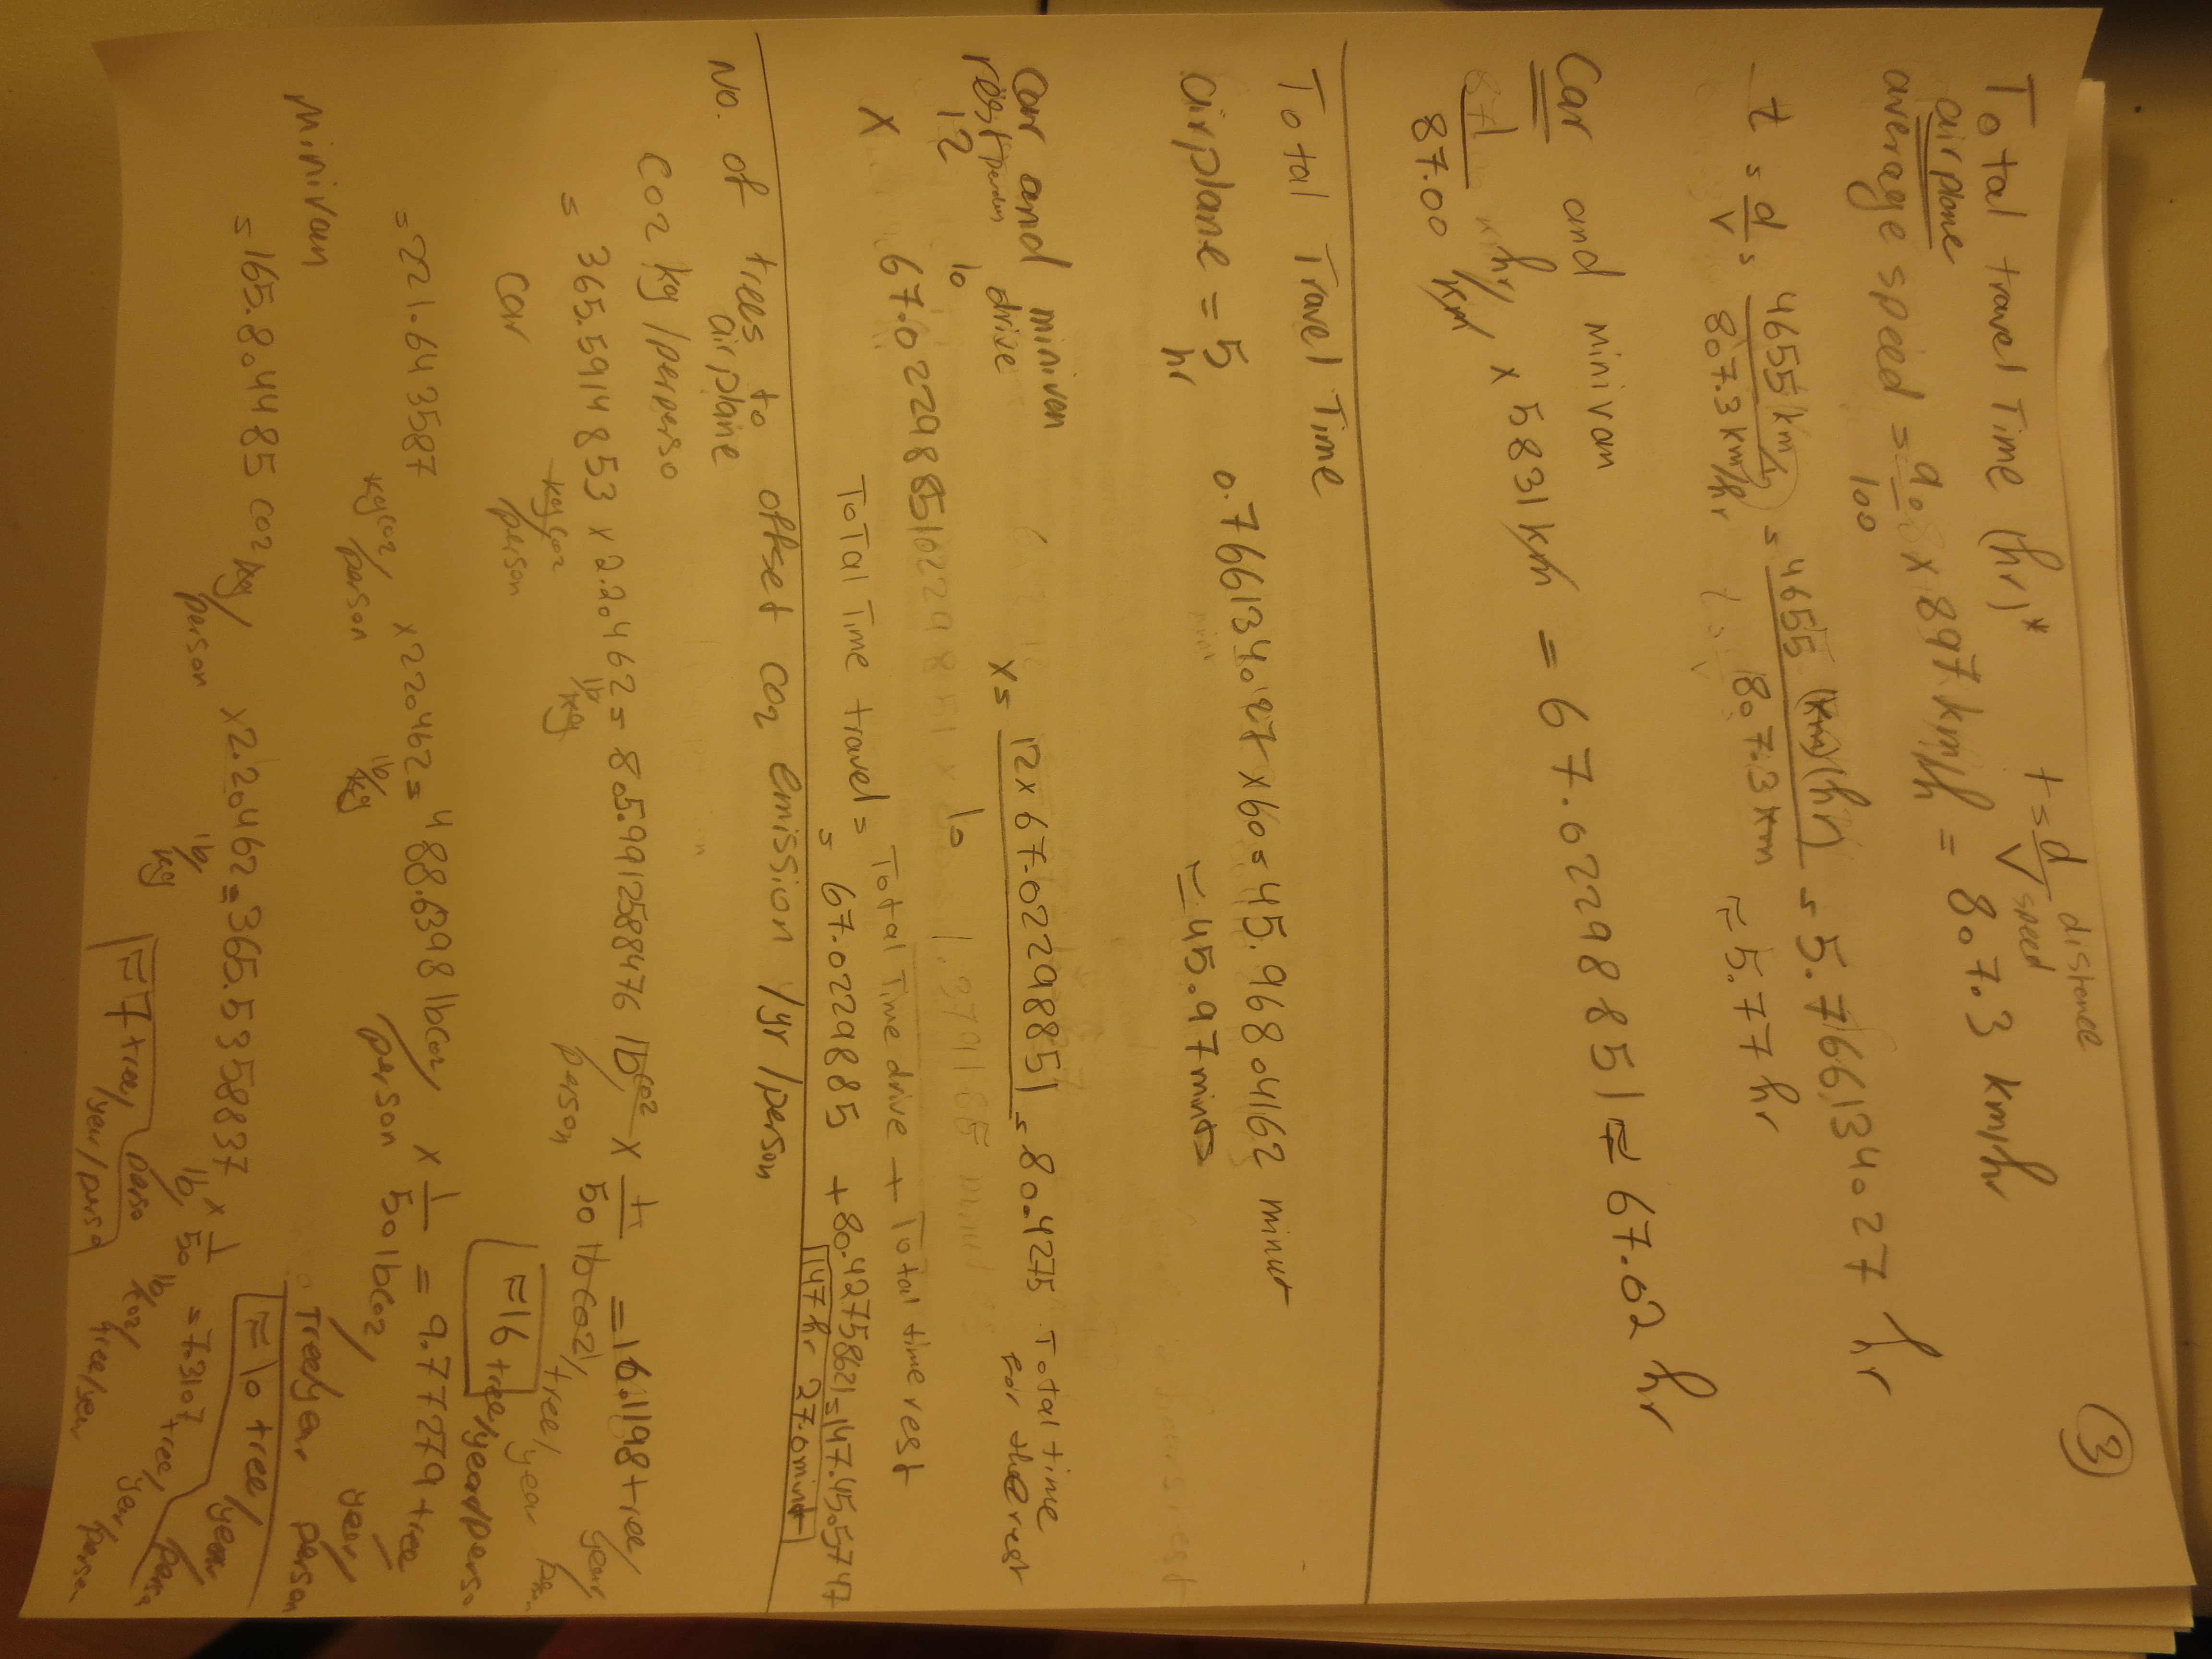 3
Total travel Time (hr)*
t = d/v distance speed
airplane
average speed = 90/100 x 897 km/h = 807.3 km/hr
t = d/v = 4655 km/807.3 km/hr = 4655 (km)(hr)/807.3 km = 5.766134027 hr
≈ 5.77 hr
Car and minivan
hr/87.00 km x 5831 km = 67.02298851 ≈ 67.02 hr
Total Travel Time
airplane = 5 hr 0.766134027 x 60 = 45.96804162 minut
≈ 45.97 minut
Car and minivan
rest drive
12 10
x 67.02298851
x = 12 x 67.02298851/10 = 80.4275 Total time for the rest
Total Time travel = Total Time drive + Total time rest
= 67.0229885 + 80.42758621 = 147.45.5747
147 hr 27.0 minut
No. of trees to offset CO2 emission /yr/person
airplane
CO2 kg/perperso
= 365.5914853 kg CO2/person x 2.20462 lb/kg = 805.9912588476 lb CO2/person x 1/50 lb CO2/tree/year = 16.1198 tree/year/person
≈ 16 tree/year/perso
Car
= 221.643587 kg CO2/person x 2.20462 lb/kg = 488.6398 lb CO2/person x 1/50 lb CO2 = 9.77279 tree/year/person
Tree/year person
≈ 10 tree/year/perso
Minivan
= 165.804485 CO2 kg/person x 2.20462 lb/kg = 365.5358837 lb x 1/50 lb CO2/tree/year = 7.3107 tree/year/person
≈ 7 tree/year/perso